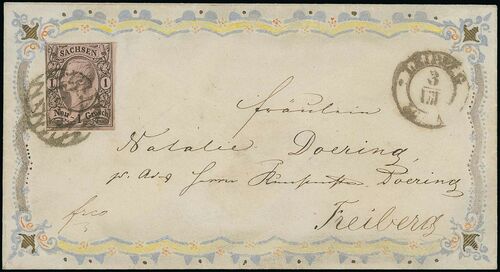 SACHSEN
1 1
Neu 1 Grosch
LEIPZIG
3
III
Fräulein
Natalie Doering,
p. Adr. Herrn Doering
frco
Freiberg